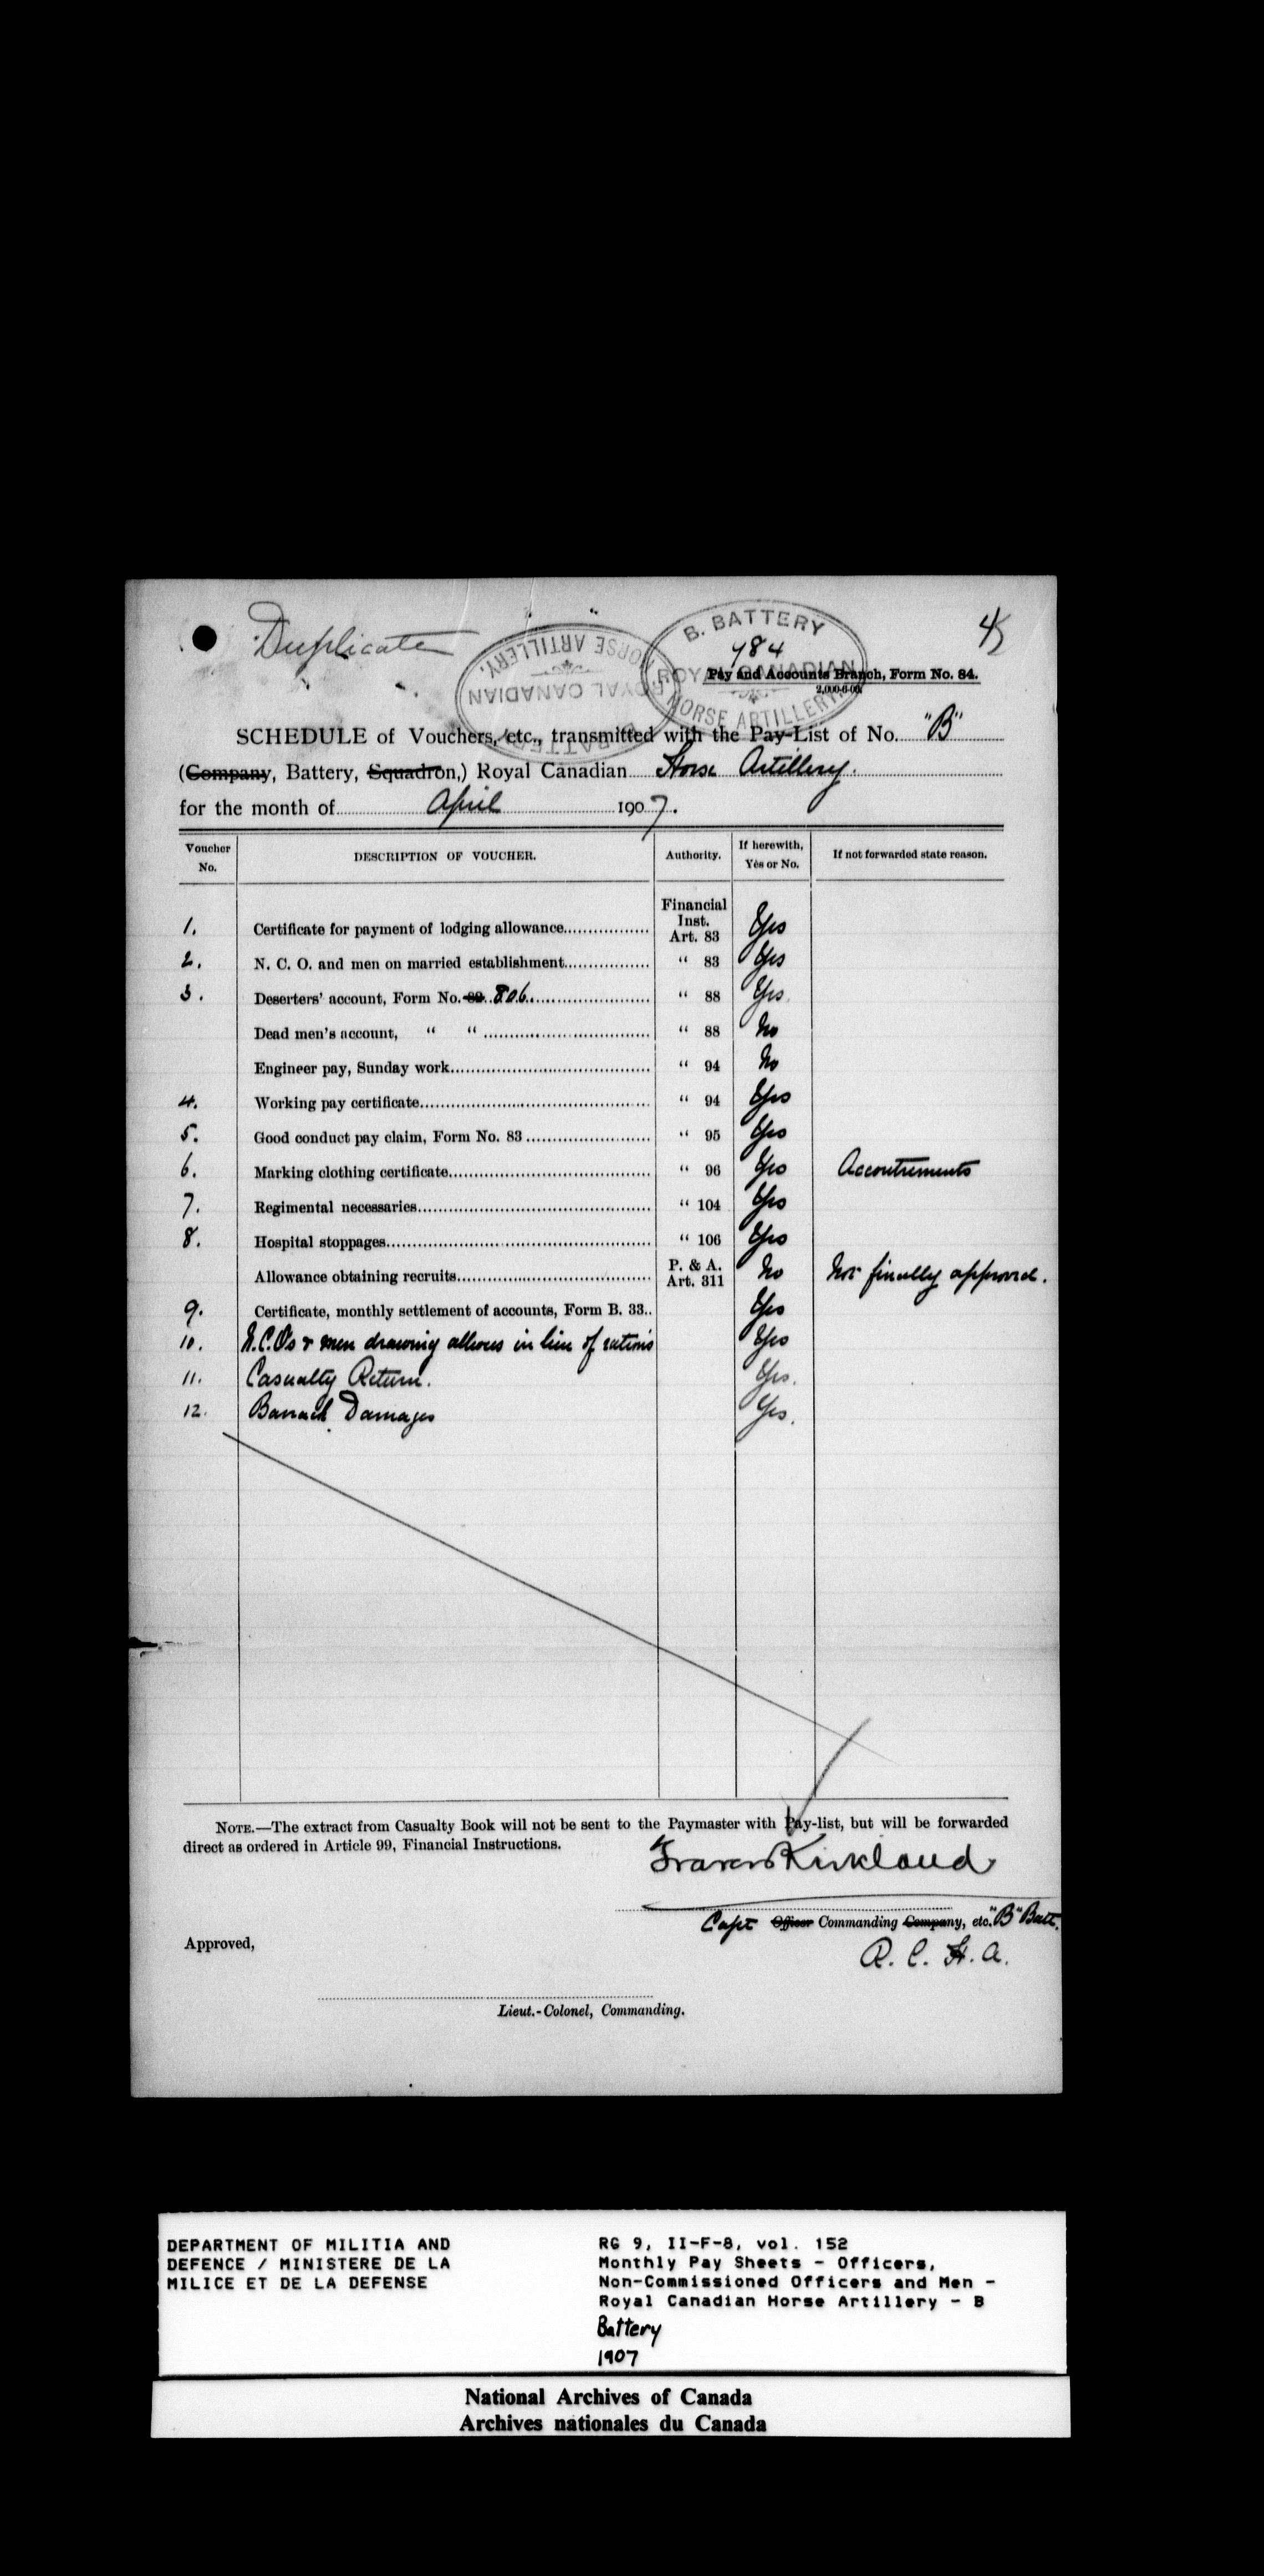 Duplicate
B. BATTERY
ROYAL CANADIAN
HORSE ARTILLERY.
B. BATTERY
ROYAL CANADIAN
HORSE ARTILLERY.
784
Pay and Accounts Branch, Form No. 84.
SCHEDULE of Vouchers, etc., transmitted with the Pay-List of No. "B"
(Company, Battery, Squadron,) Royal Canadian Horse Artillery.
for the month of April 1907.
Voucher No. DESCRIPTION OF VOUCHER. Authority. If herewith, Yes or No. If not forwarded state reason.
1. Certificate for payment of lodging allowance Financial Inst. Art. 83 Yes
2. N. C. O. and men on married establishment " 83 Yes
3. Deserters' account, Form No. 82 806 " 88 Yes.
Dead men's account, " " " 88 No
Engineer pay, Sunday work " 94 No
4. Working pay certificate " 94 Yes
5. Good conduct pay claim, Form No. 83 " 95 Yes
6. Marking clothing certificate " 96 Yes Accoutrements
7. Regimental necessaries " 104 Yes
8. Hospital stoppages " 106 Yes
Allowance obtaining recruits P. & A. Art. 311 No Not finally approved.
9. Certificate, monthly settlement of accounts, Form B. 33.. Yes
10. N.C.O's & men drawing allwes in lieu of rations Yes
11. Casualty Return. Yes.
12. Barrack Damages Yes.
NOTE.—The extract from Casualty Book will not be sent to the Paymaster with Pay-list, but will be forwarded
direct as ordered in Article 99, Financial Instructions.
Kirkland
Capt Officer Commanding Company, etc. "B" Batt.
R. C. H. A.
Approved,
Lieut.-Colonel, Commanding.
DEPARTMENT OF MILITIA AND
DEFENCE / MINISTERE DE LA
MILICE ET DE LA DEFENSE
RG 9, II-F-8, vol. 152
Monthly Pay Sheets - Officers,
Non-Commissioned Officers and Men -
Royal Canadian Horse Artillery - B
Battery
1907
National Archives of Canada
Archives nationales du Canada